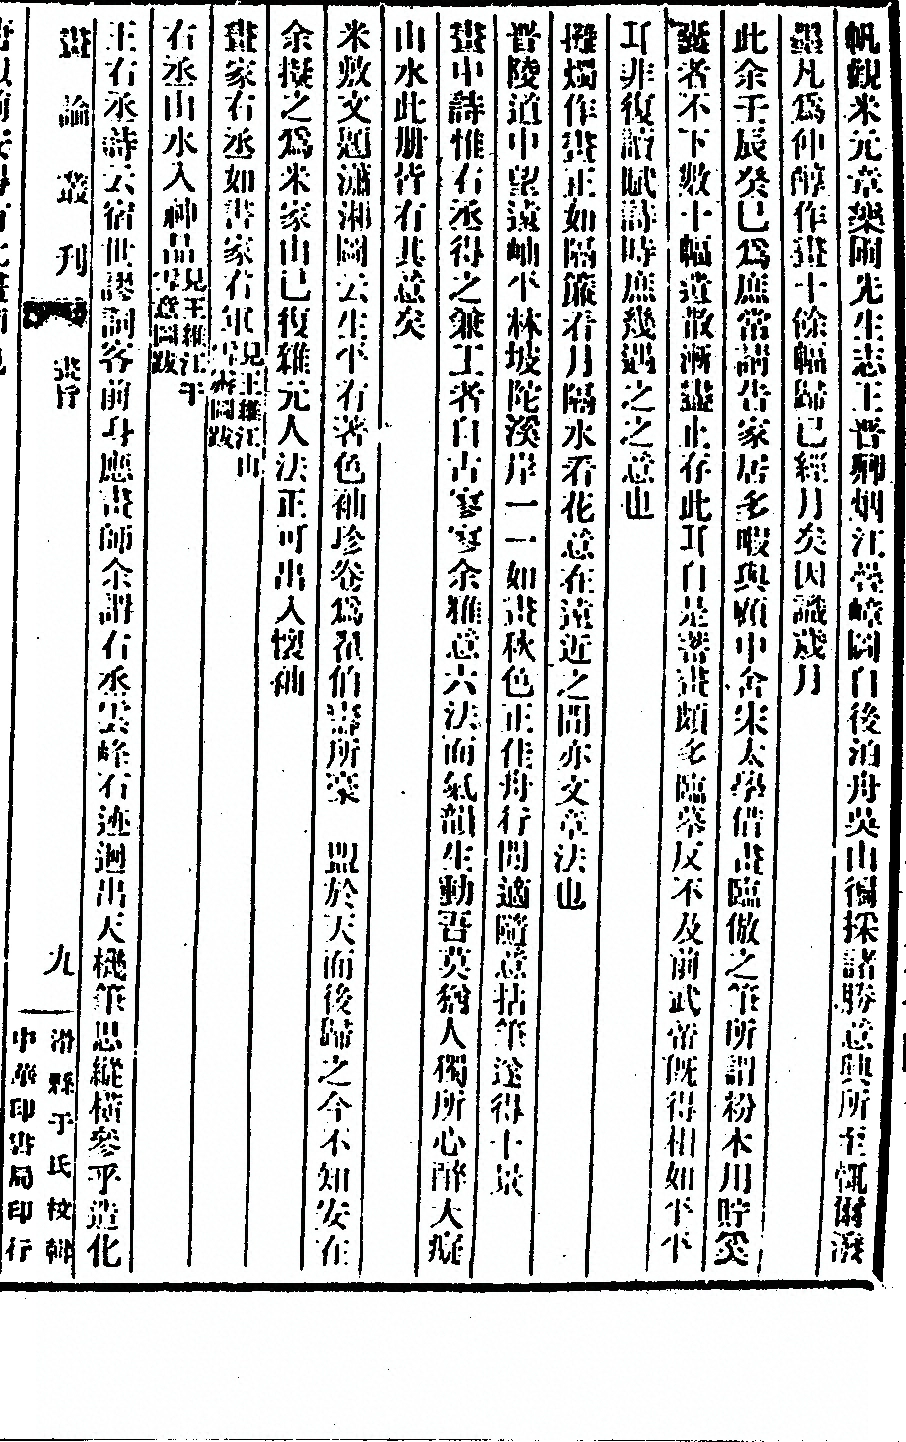 帆觀米元章樂圃先生志王晉卿烟江疊嶂圖自後泊舟吳山徧採諸勝意興所至慨爾潑
墨凡爲仲醇作畫十餘幅歸已經月矣因識歲月
此余壬辰癸巳爲庶常請告家居多暇與顧中舍宋太學借畫臨倣之筆所謂粉本用貯篋
者不下數十幅遺散漸盡止存此耳自是蓄畫頗多臨摹反不及前武帝既得相如乎乎
耳非復讀賦詩時庶幾遇之之意也
撥燭作畫正如隔簾看月隔水看花意在遠近之間亦文章法也
晉陵道中望遠岫平林坡陀溪岸一一如畫秋色正佳舟行閒適隨意拈筆遂得十景
畫中詩惟右丞得之兼工者自古寥寥余雅意六法而氣韻生動吾莫猶人獨所心醉大癡
山水此册皆有其意矣
米敷文題瀟湘圖云生平有著色袖珍卷爲翟伯壽所豪 盟於天而後歸之今不知安在
余擬之爲米家山已復雜元人法正可出入懷袖
畫家右丞如書家右軍見王維江山雪霽圖跋
右丞山水入神品見王維江干雪意圖跋
王右丞詩云宿世謬詞客前身應畫師余謂右丞雲峰石迹迥出天機筆思縱橫參乎造化
畫論叢刊 畫旨 九
滑縣于氏校輯
中華印書局印行